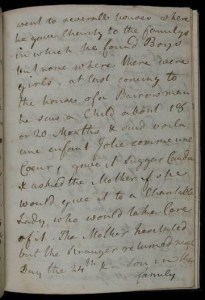 went to severall houses where
he gave Charity to the familys
in which he found Boys
but none where there were
girls, at last coming to
the house of a
he saw a Child about 18
or 20 Months & said voila
une enfant Jolie comme un
Coeur, gave it Sugar Candy
& asked the Mother if she
would give it to a Charitable
Lady who would take Care
of it. The Mother hesitated
but the Stranger returned next
Day the 24th
family